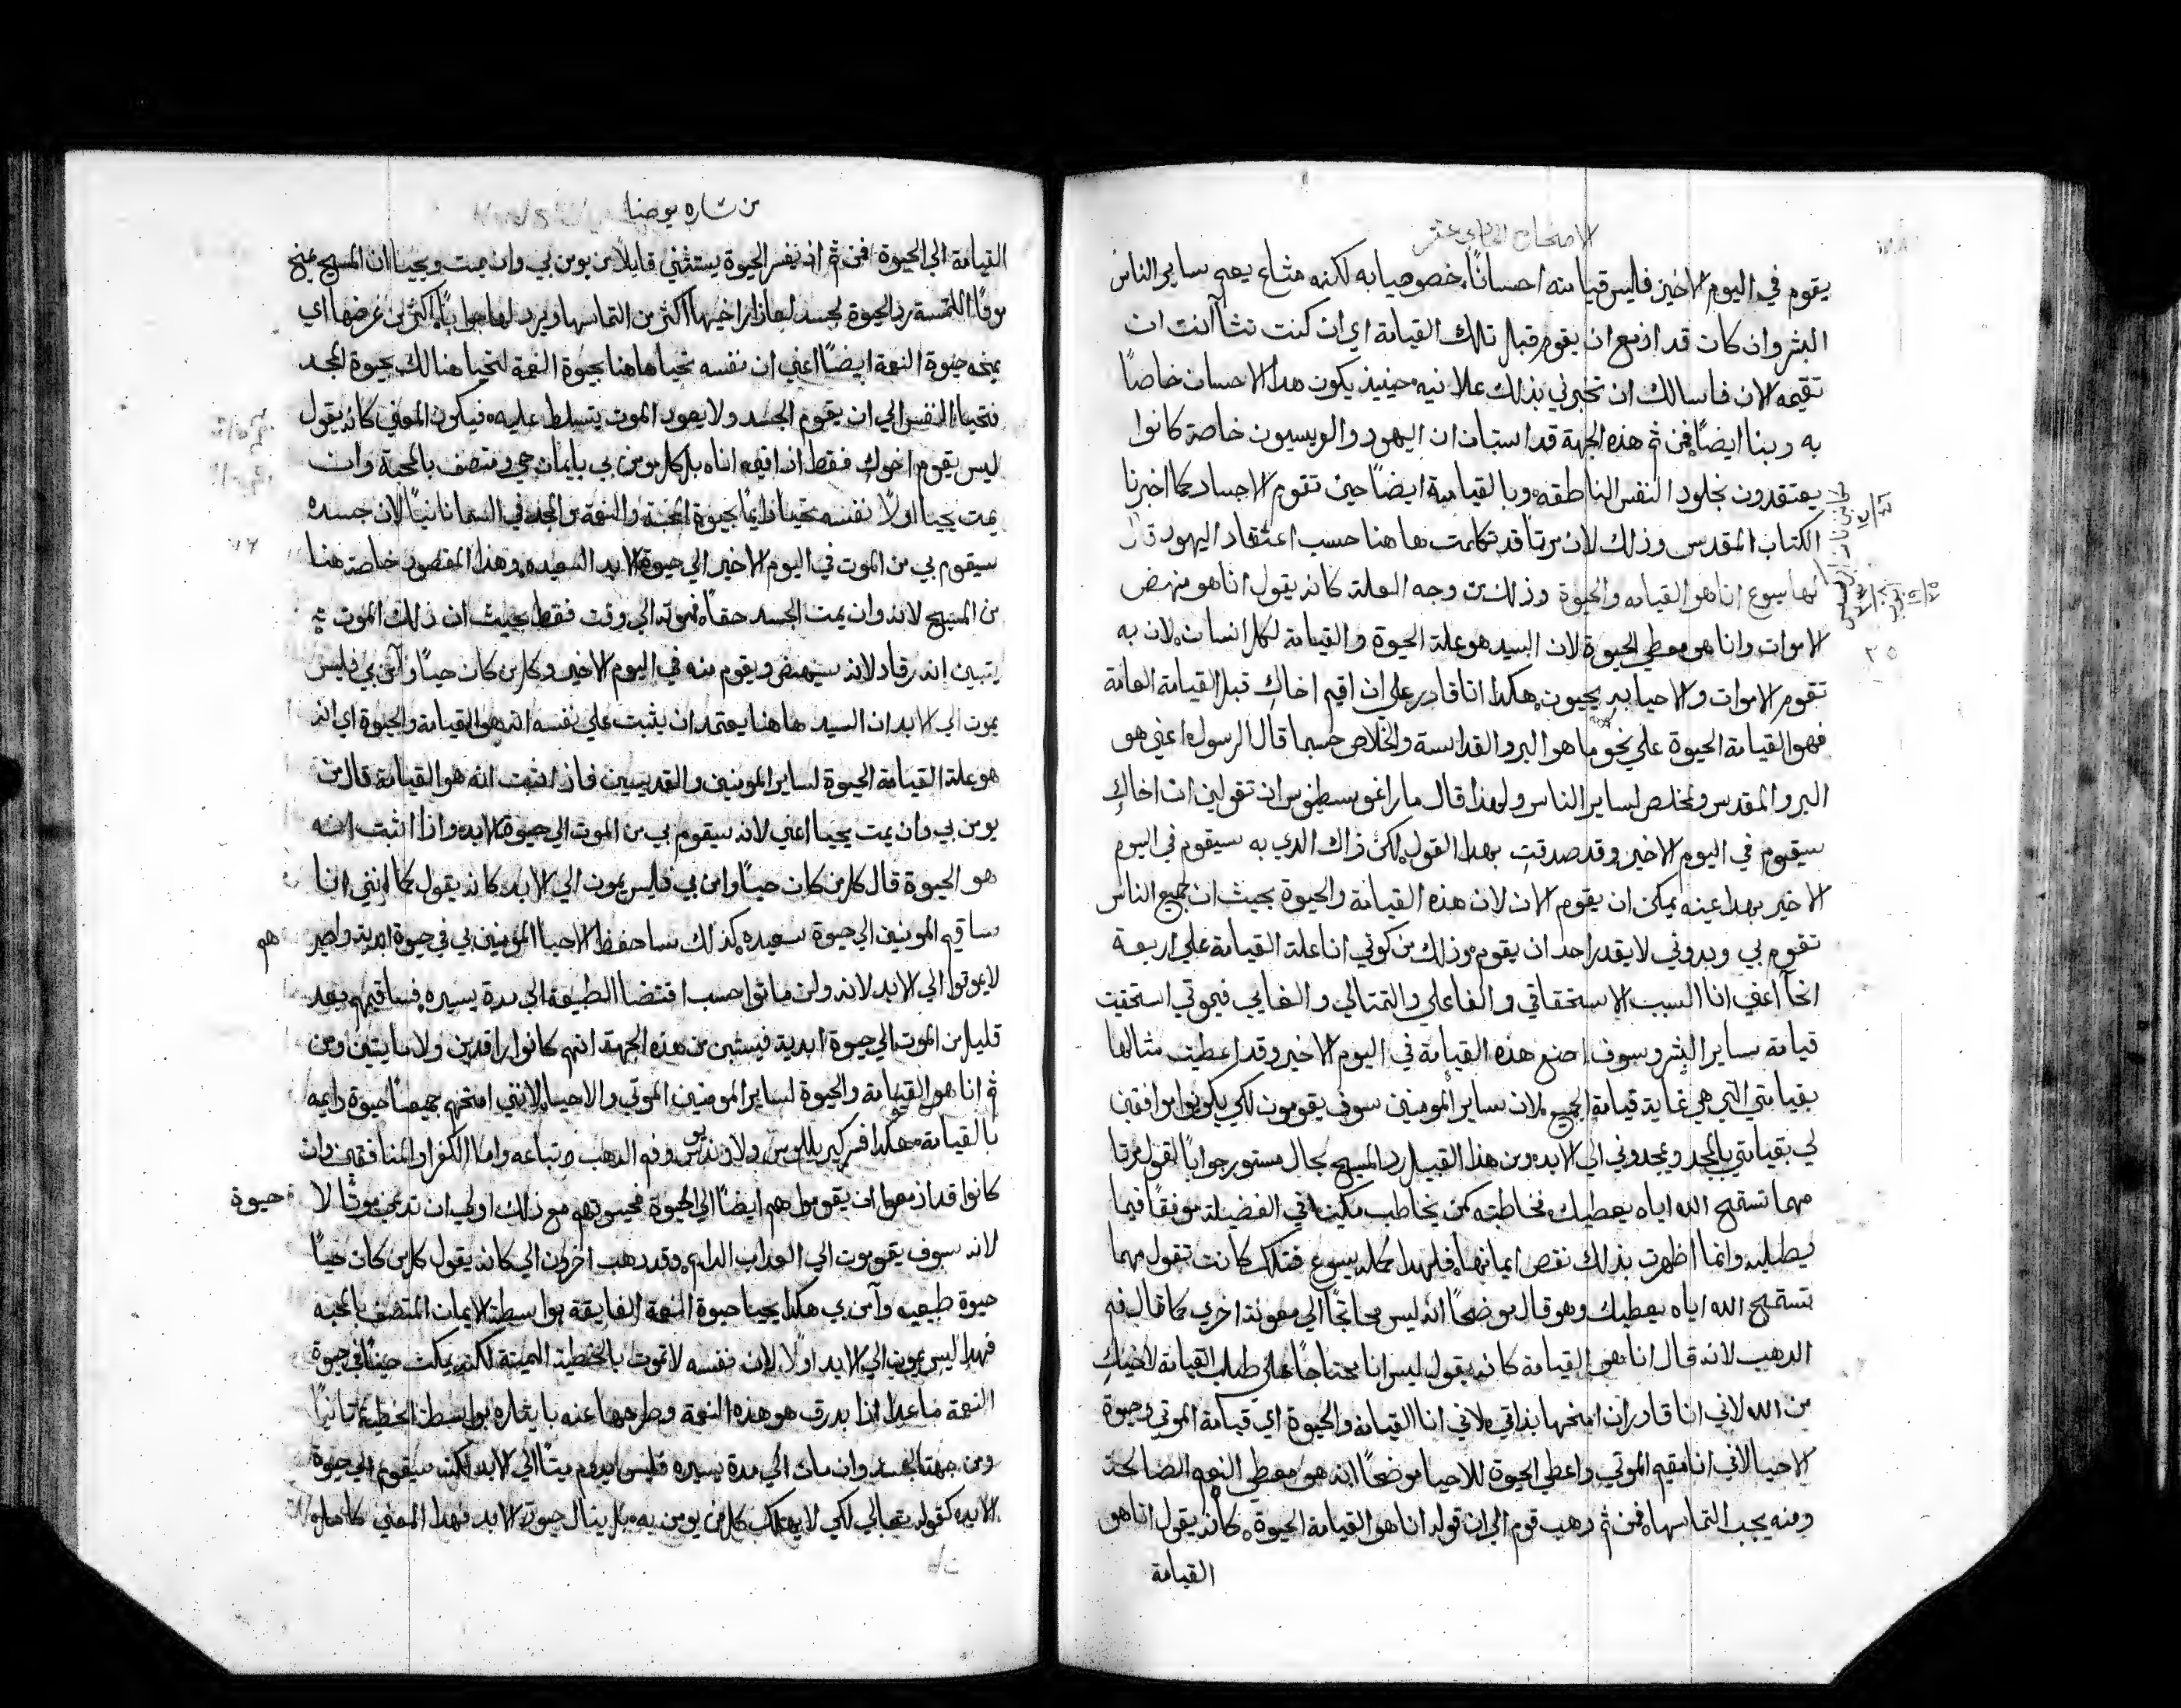 الاصحاح الحادي عشر
يقوم في اليوم الاخير فليس قيامته احسانًا خصوصيا به لكنه مشاع يعم ساير الناس
البشر وان كان قد ازمع ان يقوم قبل تلك القيامة اي ان كنت تشا انت ان
تقيمه الان فاسالك ان تخبرني بذلك علانيه حينيذ يكون هذا الاحسان خاصاً
به وبنا ايضًا فمن ثم هذه الجهة قد استبان ان اليهود والفريسيون خاصة كانوا
يعتقدون بخلود النفس الناطقه وبالقيامة ايضًا حين تقوم الاجساد كما اخبرنا
الكتاب المقدس وذلك لان مرتا قد تكلمت ها هنا حسب اعتقاد اليهود قال
لها يسوع انا هو القيامه والحيوة وذلك من وجه العلة كانه يقول انا هو منهض
الاموات وانا هو معطي الحيوة لان السيد هو علة الحيوة والقيامة لكل انسان لان به
تقوم الاموات والاحيا به يحيون هكذا انا قادر علي ان اقيم اخاكِ قبل القيامة العامة
فهو القيامة الحيوة علي نحو ما هو البر والقداسة والخلاص حسبما قال الرسول اعني هو
البر والمقدس والمخلص لساير الناس ولهذا قال مار اغوسطينوس ان تقولين ان اخاكِ
سيقوم في اليوم الاخير وقد صدقتِ بهذا القول لكن ذاك الذي به سيقوم في اليوم
الاخير بهذا عينه يمكن ان يقوم الان لان هذه القيامة والحيوة بحيث ان جميع الناس
تقوم بي وبدوني لا يقدر احد ان يقوم وذلك من كوني انا علة القيامة علي اربعة
انحآ اعني انا السبب الاستحقاقي والفاعلي والتمثالي والغايي فبموتي استحقيت
قيامة ساير البشر وسوف اصنع هذه القيامة في اليوم الاخير وقد اعطيت مثالها
بقيامتي التي هي غاية قيامة الجميع لان ساير المومنين سوف يقومون لكي يكونوا موافقين
لي بقيامتي بالمجد ويمجدوني الي الابد ومن هذا القبيل رد المسيح بحال مستور جوابًا لقول مرتا
مهما تستمح الله اياه يعطيك فخاطبته كمن يخاطب مكينا في الفضيلة موفقًا فيما
يطلبه وانما اظهرت بذلك نقص ايمانها فلهذا كمله يسوع فتلك كانت تقول مهما
تستمح الله اياه يعطيك وهو قال موضحًا انه ليس محتاجًا الي معونة اخري كما قال فم
الذهب لانه قال انا هو القيامة كانه يقول ليس انا محتاجًا علي طلب القيامة لاخيكِ
من الله لاني انا قادر ان امنحها بذاتي لاني انا القيامه والحيوة اي قيامة الموتي وحيوة
الاحيا لاني انا مقيم الموتي واعطي الحيوة للاحيا موضحًا انه هو معطي النعم الصالحة
ومنه يجب التماسها فمن ثم ذهب قوم الي ان قوله انا هو القيامة الحيوة كانه يقول انا هو
القيامة
من بشاره يوحنا
القيامة الي الحيوة فمن ثم اذ يفسر الحيوة يستثني قايلًا من يومن بي وان يمت ويحيا ان المسيح يمنح
مرتا الملتمسة رد الحيوة لجسد لعازار اخيها اكثر من التماسها ويرد لها جوابًا اكثر من غرضها اي
يمنحه حيوة النعمة ايضًا اعني ان نفسه تحيا ها هنا بحيوة النعمة لتحيا هنالك بحيوة المجد
فتحيا النفس الي ان يقوم الجسد ولا يعود الموت يتسلط عليه فيكون المعني كانه يقول
ليس يقوم اخوكِ فقط اذ اقيمه انا بل كل مومن بي بايمان حي ومتصف بالمحبة وان
يمت يحيا اولًا نفسه تحيا دايمًا بحيوة المحبة والنعمة والمجد في السما ثانيًا لان جسده
سيقوم بي من الموت في اليوم الاخير الي حيوة الابد السعيده وهذا المقصود خاصة هنا
من المسيح لانه وان يمت الجسد حقًا فموته الي وقت فقط بحيث ان ذلك الموت
يتبين انه رقاد لانه سينهض ويقوم منه في اليوم الاخير وكل من كان حيًا وآمن بي فليس
يموت الي الابد ان السيد ها هنا يعتمد ان يثبت علي نفسه انه هو القيامة والحيوة اي انه
هو علة القيامة الحيوة لساير المومنين والقديسين فاذ اثبت انه هو القيامة قال من
يومن بي وان يمت يحيا اعني لانه سيقوم بي من الموت الي حيوة الابد واذا اثبت انه
هو الحيوة قال كل من كان حيًا وامن بي فليس يموت الي الابد كانه يقول كما انني انا
ساقيم المومنين الي حيوة سعيده كذلك ساحفظ الاحيا المومنين بي في حيوة ابدية واصير هم
لا يموتوا الي الابد لانه ولن ماتوا حسب اقتضا الطبيعة الي مدة يسيره فساقيمهم بعد
قليل من الموت الي حيوة ابدية فيتبين من هذه الجهة انهم كانوا راقدين ولا مايتين ومن
ثم انا هو القيامة والحيوة لساير المومنين الموتي والاحيا لانني امنحهم جميعًا حيوة دايمه
بالقيامة هكذا فسر كيرللوس ولاونديوس وفم الذهب وتباعه واما الكفرا والمنافقين وان
كانوا قد ازمعوا ان يقوموا هم ايضًا الي الحيوة فحيوتهم مع ذلك اولي ان تدعي موتًا لا حيوة
لانه سوف يقومون الي العذاب الدايم وقد ذهب اخرون الي كانه يقول كل من كان حيًا
حيوة طبيعيه وآمن بي هكذا يحيا حيوة النعمة الفايقة بواسطة الايمان المتصف بالمحبه
فهذا ليس يموت الي الابد اولًا لان نفسه لا تموت بالخطية المميتة لكنه يمكث حيًا في حيوة
النعمة ما عدا اذا بدرق هو هذه النعمة وطرحها عنه بايثاره بواسطة الخطية ثانيًا
ومن جهة الجسد وان مات الي مدة يسيره فليس يدوم ميتًا الي الابد لكنه سيقوم الي حيوة
الابد كقوله تعالي لكي لا يهلك كل من يومن به بل ينال حيوة الابد فهذا المعني كانه